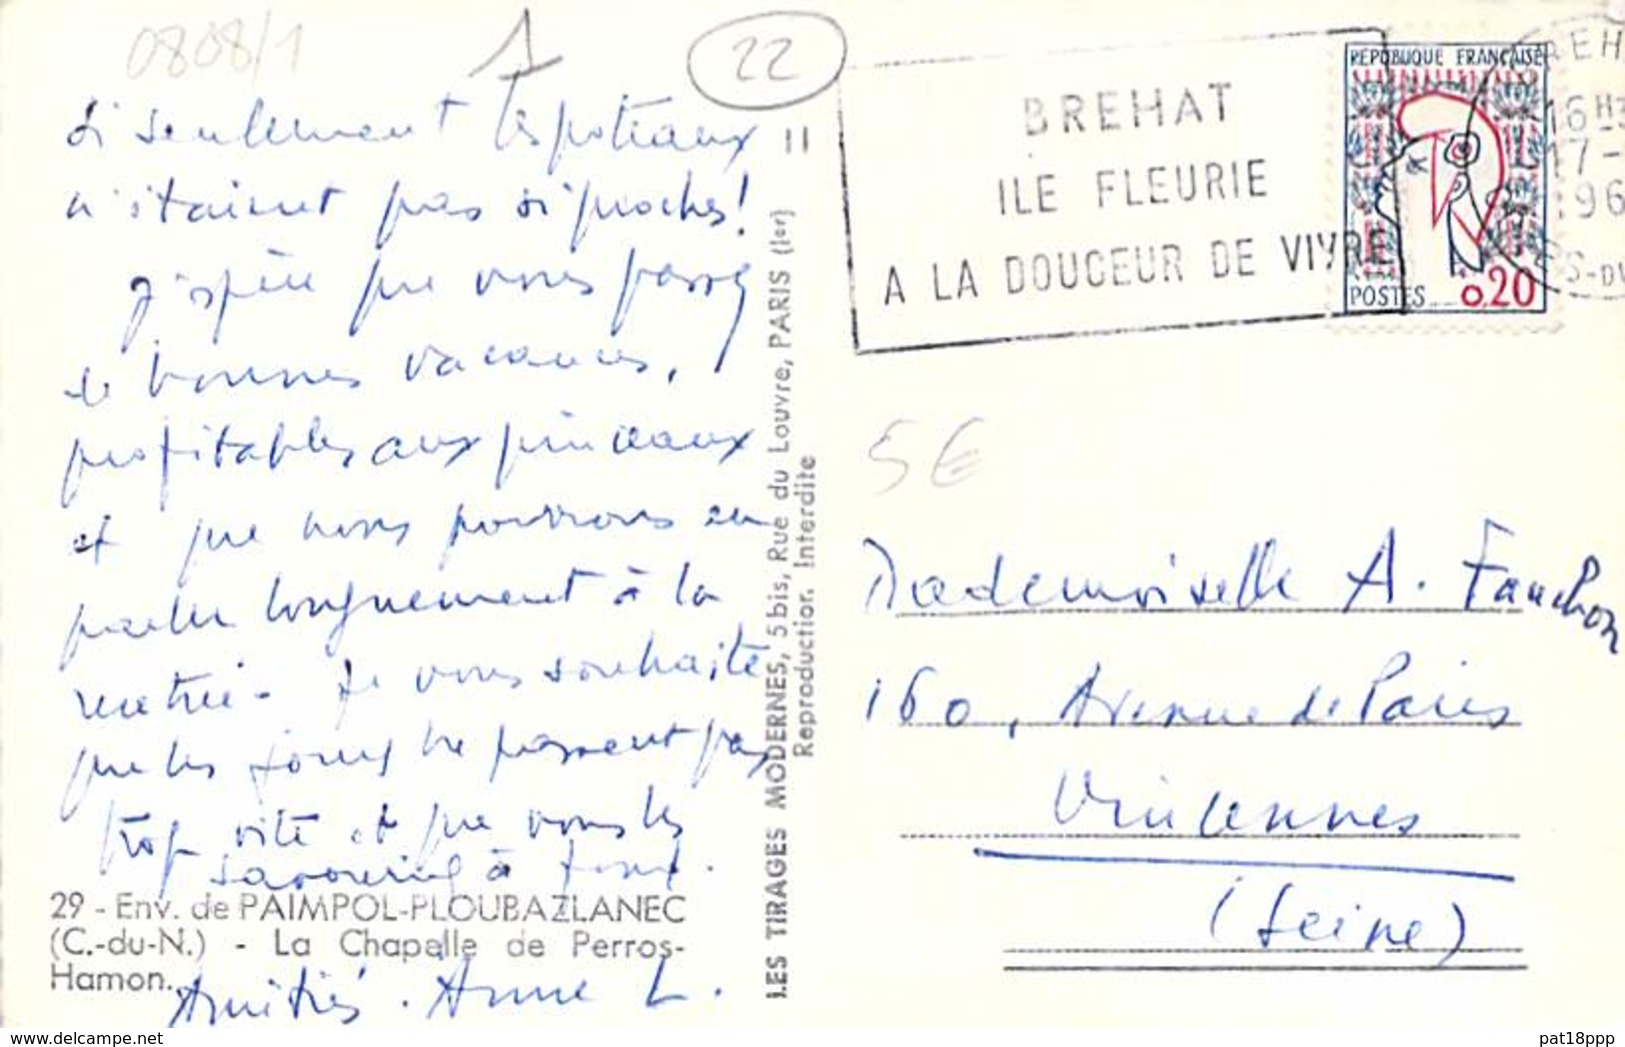 0808/1
22
Si seulement les poteaux
n'étaient pas si proches!
J'espère que vous passez
de bonnes vacances,
profitables aux pinceaux
et que nous pourrons en
parler longuement à la
rentrée - Je vous souhaite
que les jours ne passent pas
trop vite et que vous les
savouriez à fond.
29 - Env. de PAIMPOL-PLOUBAZLANEC
(C.-du-N.) - La Chapelle de Perros-
Hamon.
Amitiés. Anne L.
LES TIRAGES MODERNES, 5 bis, Rue du Louvre, PARIS (Ier)
Reproduction Interdite
II
BREHAT
ILE FLEURIE
A LA DOUCEUR DE VIVRE
REPUBLIQUE FRANÇAISE
POSTES 0,20
BREH
16 H
17 -
196
ES-DU
5€
Mademoiselle A. Fauchon
160, Avenue de Paris
Vincennes
(Seine)
pat18ppp